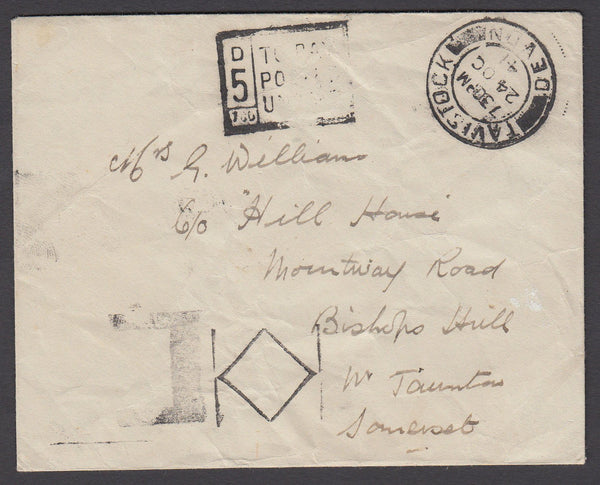 D
5
780
TO PAY
TAVISTOCK DEVON
730PM
24 OC
41
Mrs G. Williams
C/o Hill House
Mountway Road
Bishops Hull
Nr Taunton
Somerset